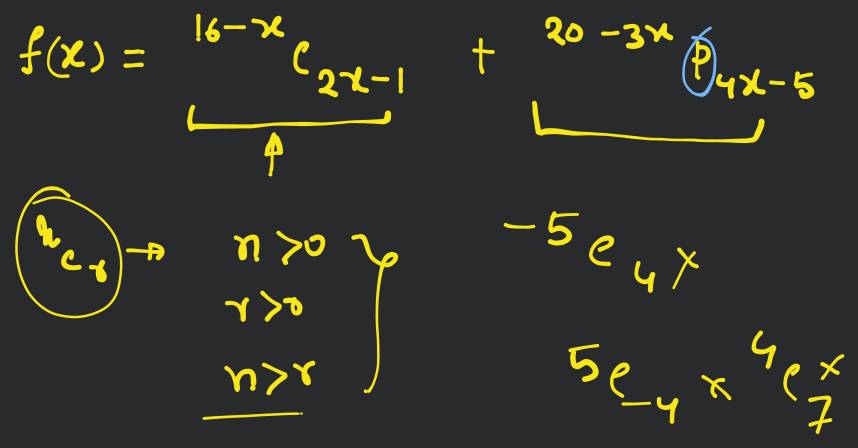 f(x) = 16-x C 2x-1 + 20-3x P 4x-5
n C r → n>0
r>0
n>r
-5 C 4 ×
5 C -4 × 4 C 7 ×